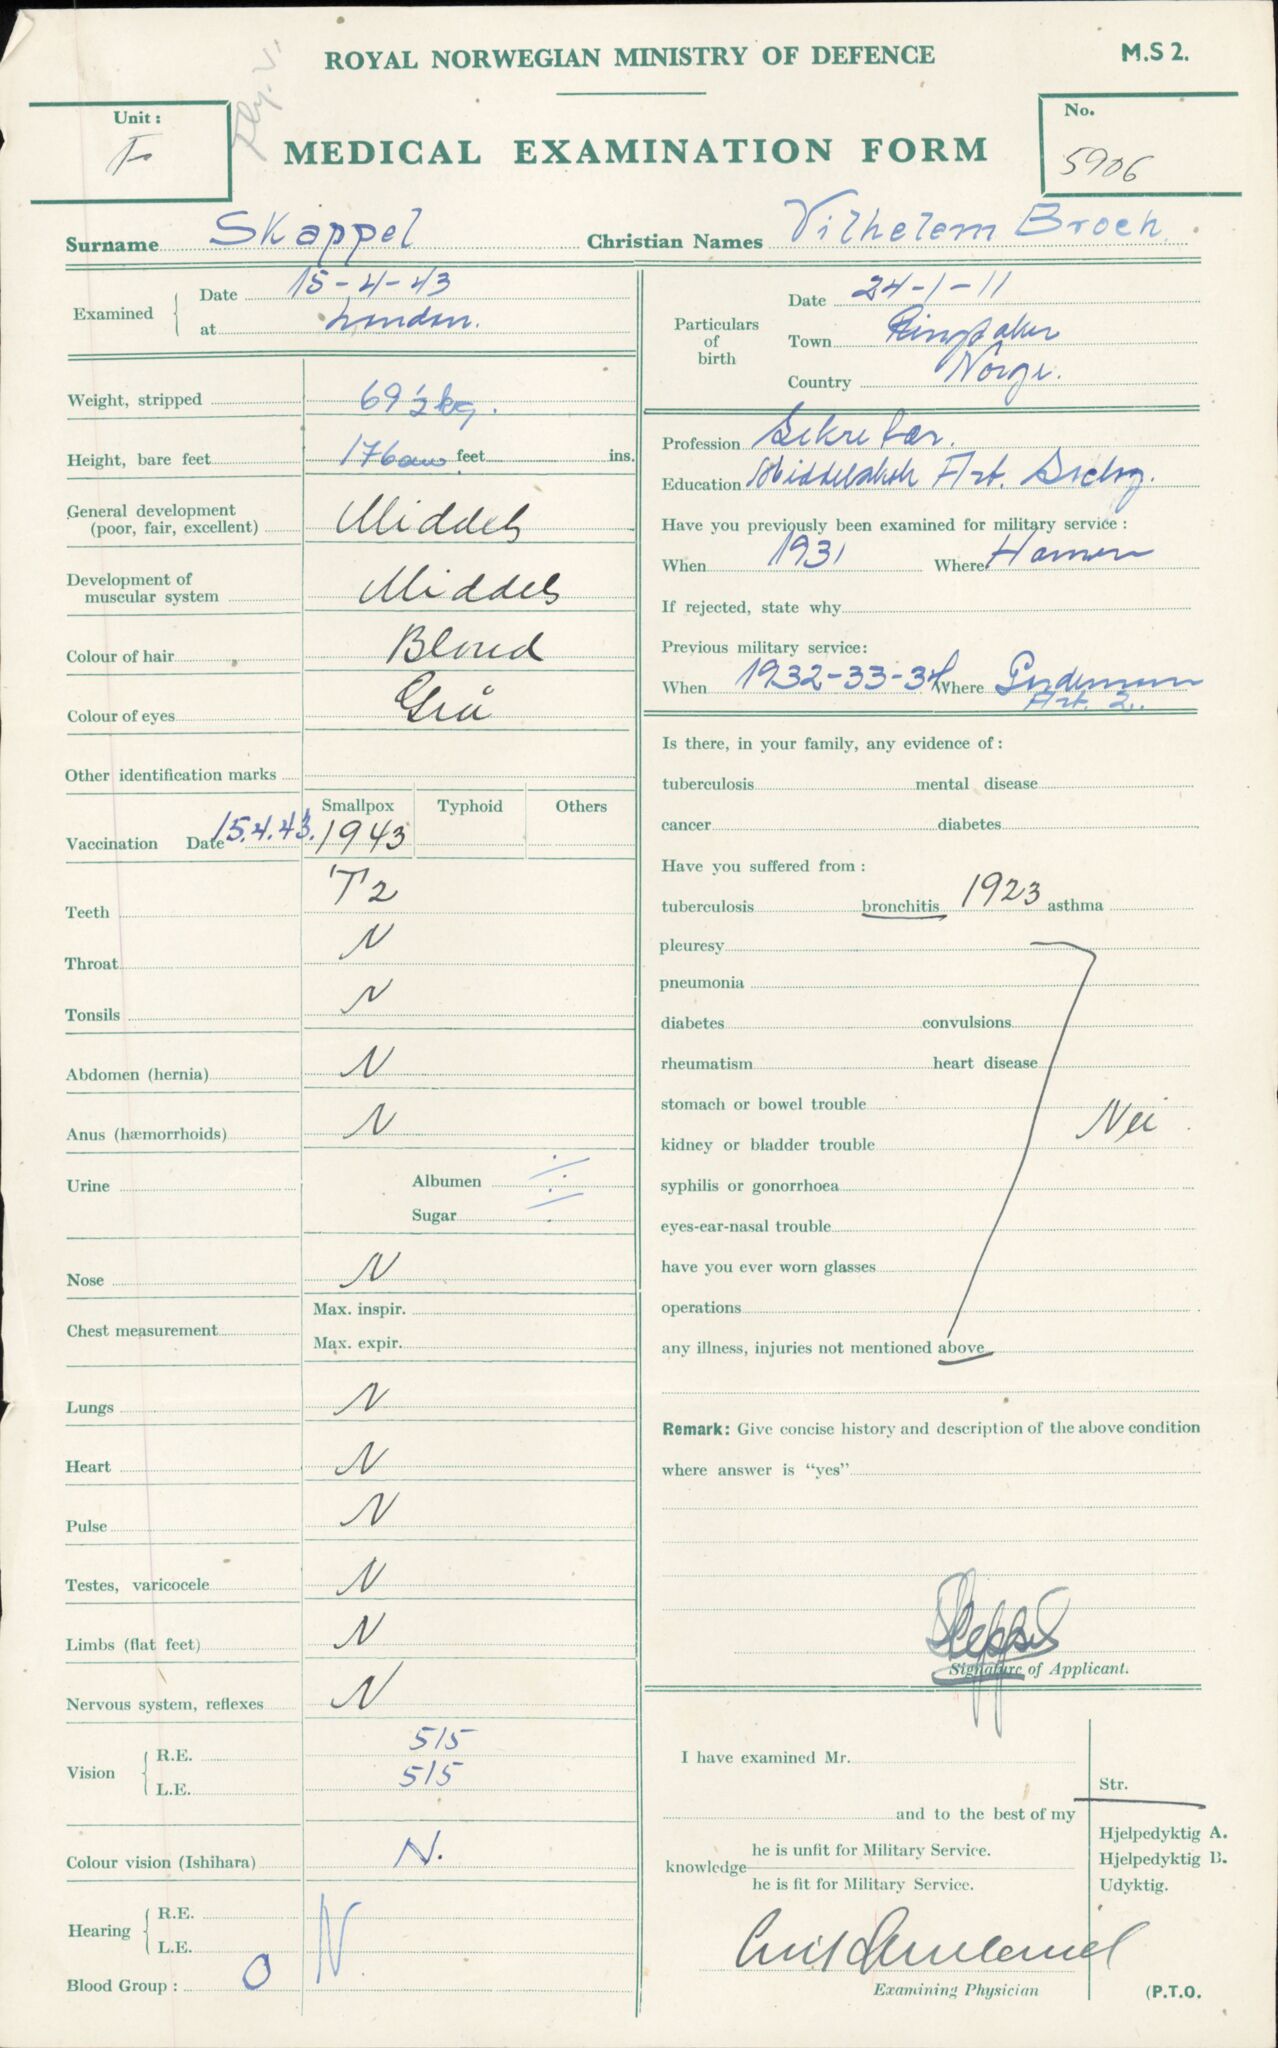 ROYAL NORWEGIAN MINISTRY OF DEFENCE
M.S 2.
Fly. V.
Unit :
F
MEDICAL EXAMINATION FORM
No.
5906
Surname Skappel
Christian Names Vilhelem Broch
Examined
Date 15-4-43
at London.
Weight, stripped 69½ kg.
Height, bare feet 176 cm feet ins.
General development
(poor, fair, excellent) Middels
Development of
muscular system Middels
Colour of hair Blond
Colour of eyes Grå
Other identification marks
Smallpox Typhoid Others
Vaccination Date 15.4.43. 1943
Teeth T2
Throat N
Tonsils N
Abdomen (hernia) N
Anus (hæmorrhoids) N
Urine Albumen ÷
Sugar ÷
Nose N
Chest measurement
Max. inspir.
Max. expir.
Lungs N
Heart N
Pulse N
Testes, varicocele N
Limbs (flat feet) N
Nervous system, reflexes N
Vision
R.E. 5/5
L.E. 5/5
Colour vision (Ishihara) N.
Hearing
R.E.
L.E. N
Blood Group : O
Particulars
of
birth
Date 24-1-11
Town Ringsaker
Country Norge.
Profession Sekretær.
Education Middelskole Art.
Have you previously been examined for military service :
When 1931 Where Hamar
If rejected, state why
Previous military service:
When 1932-33-34 Where
Art. 2.
Is there, in your family, any evidence of :
tuberculosis mental disease
cancer diabetes
Have you suffered from :
tuberculosis bronchitis 1923 asthma
pleuresy
pneumonia
diabetes convulsions
rheumatism heart disease
stomach or bowel trouble
Nei
kidney or bladder trouble
syphilis or gonorrhoea
eyes-ear-nasal trouble
have you ever worn glasses
operations
any illness, injuries not mentioned above
Remark: Give concise history and description of the above condition
where answer is "yes"
Skappel
Signature of Applicant.
I have examined Mr.
and to the best of my
knowledge
he is unfit for Military Service.
he is fit for Military Service.
Str.
Hjelpedyktig A.
Hjelpedyktig B.
Udyktig.
Examining Physician
(P.T.O.